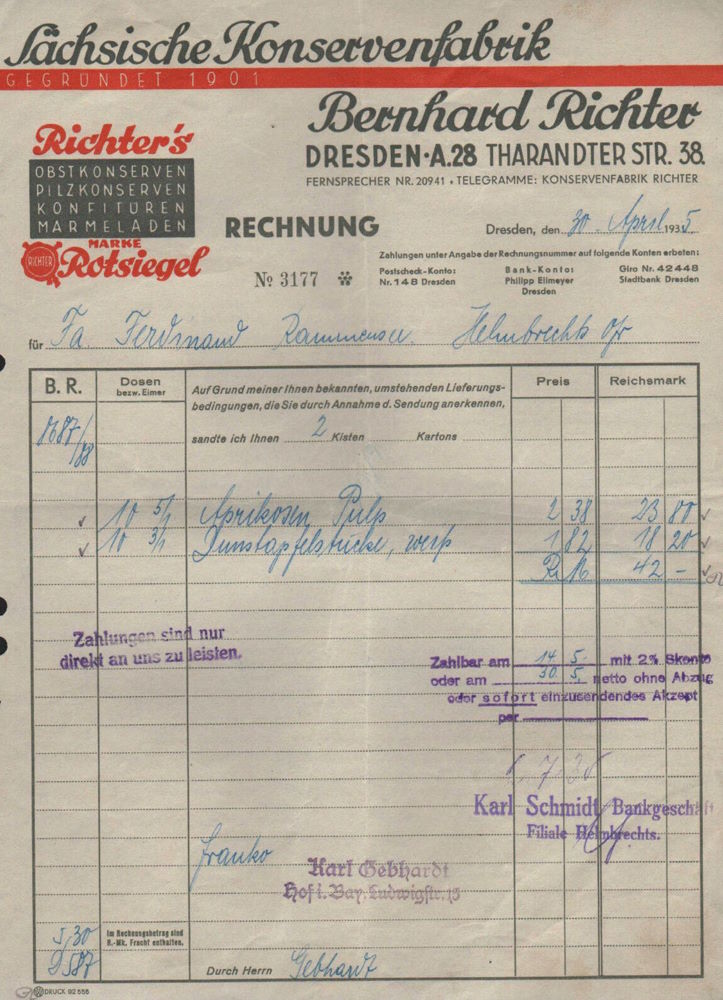 Sächsische Konservenfabrik
GEGRÜNDET 1901
Bernhard Richter
DRESDEN·A.28 THARANDTER STR. 38.
FERNSPRECHER NR. 20941 • TELEGRAMME: KONSERVENFABRIK RICHTER
Richter's
OBSTKONSERVEN
PILZKONSERVEN
KONFITÜREN
MARMELADEN
MARKE
RICHTER
Rotsiegel
RECHNUNG
Dresden, den 30. April 1935
№ 3177
Zahlungen unter Angabe der Rechnungsnummer auf folgende Konten erbeten:
Postscheck-Konto:
Nr. 148 Dresden
Bank-Konto:
Philipp Elimeyer
Dresden
Giro Nr. 42448
Stadtbank Dresden
für Fa. Ferdinand Rammensee. Helmbrechts
B. R.
Dosen
bezw. Eimer
Auf Grund meiner Ihnen bekannten, umstehenden Lieferungs-
bedingungen, die Sie durch Annahme d. Sendung anerkennen,
sandte ich Ihnen 2 Kisten Kartons
Preis
Reichsmark
10 5/1 Aprikosen Pulp 2 38 23 80
10 3/1 Dunstapfelstücke, weiß 1 82 18 20
42 –
Zahlungen sind nur
direkt an uns zu leisten.
Zahlbar am 14. 5. mit 2% Skonto
oder am 30. 5. netto ohne Abzug
oder sofort einzusendendes Akzept
per
Karl Schmidt Bankgeschäft
Filiale Helmbrechts.
franko
Karl Gebhardt
Hof i. Bay. Ludwigstr. 13
5,30
Im Rechnungsbetrag sind
R.-Mk. Fracht enthalten.
Durch Herrn Gebhardt
DRUCK 92 556